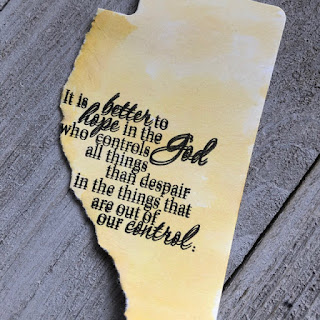 It is better to
hope in the God
who controls
all things
than despair
in the things that
are out of
our control.